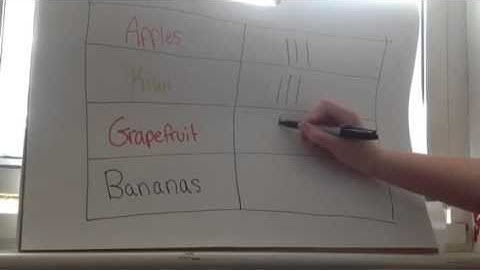 Apples |||
Kiwi |||
Grapefruit
Bananas